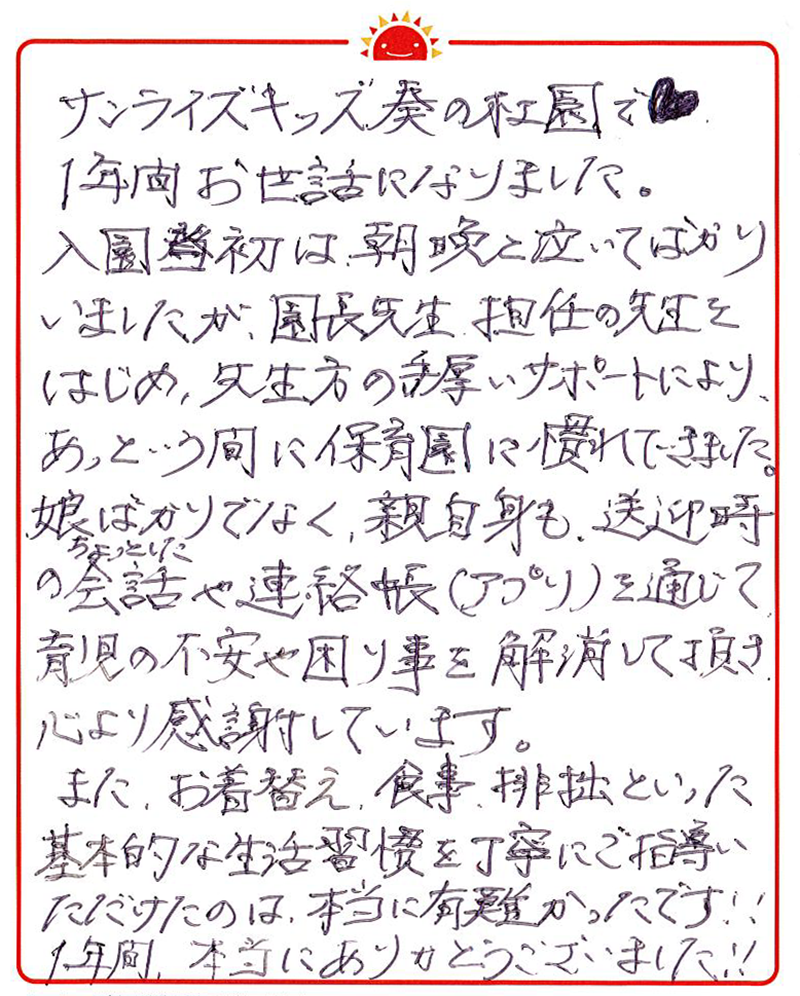 サンライズキッズ葵の杜園で
1年間お世話になりました。
入園当初は、朝晩と泣いてばかり
いましたが、園長先生、担任の先生を
はじめ、先生方の手厚いサポートにより、
あっという間に保育園に慣れてきました。
娘ばかりでなく、親自身も、送迎時
のちょっとした会話や連絡帳(アプリ)を通じて
育児の不安や困り事を解消して頂き
心より感謝しています。
また、お着替え、食事、排拙といった
基本的な生活習慣を丁寧にご指導い
ただけたのは、本当に有難かったです!!
1年間、本当にありがとうございました!!